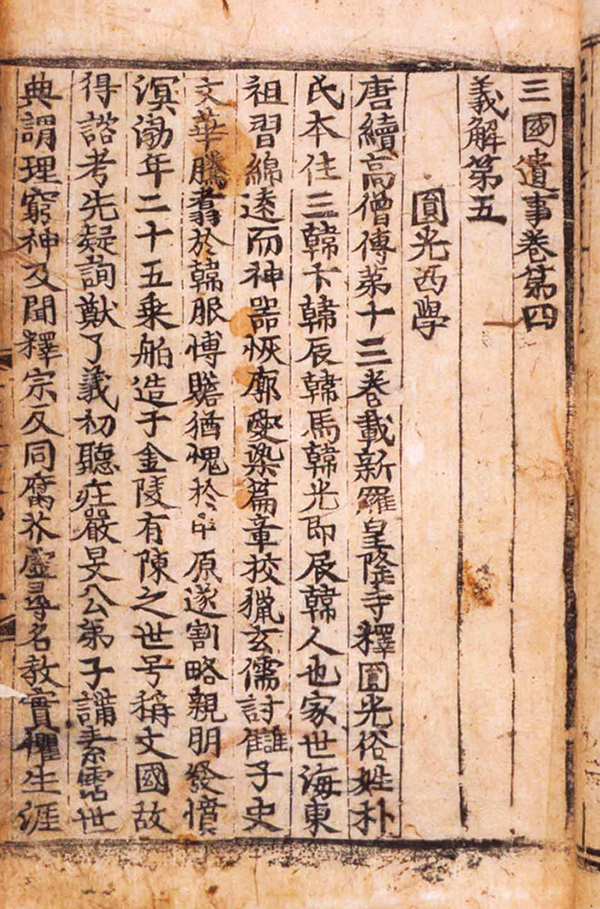 三國遺事卷第四
義解第五
圓光西學
唐續高僧傳第十三卷載新羅皇隆寺釋圓光俗姓朴
氏本住三韓卞韓辰韓馬韓光即辰韓人也家世海東
祖習綿遠而神器恢廓愛染篇章挍獵玄儒討讎子史
文華騰翥於韓服愽贍猶愧於中原遂割略親朋發憤
溟渤年二十五乗舶造于金陵有陳之世号稱文國故
得諮考先疑詢猷了義初聽莊嚴旻公弟子講素霑世
典謂理窮神及聞釋宗反同腐芥虛尋名教實懼生涯